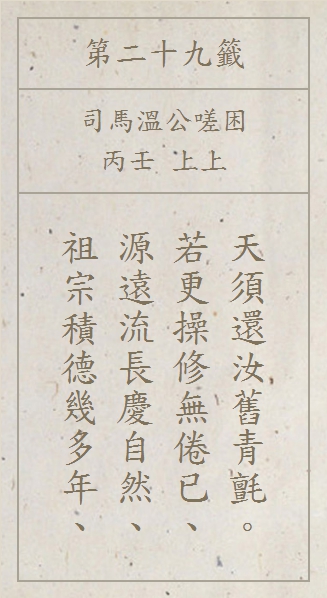 第二十九籤
司馬溫公嗟困
丙壬 上上
祖宗積德幾多年、
源遠流長慶自然、
若更操修無倦已、
天須還汝舊青氈。